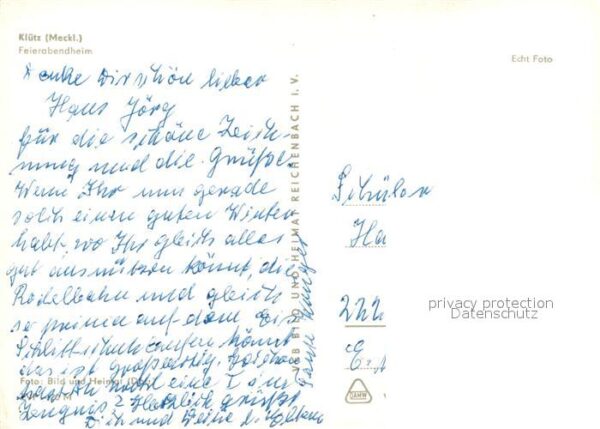 Klütz (Meckl.)
Feierabendheim
Echt Foto
Danke Dir schön lieber
Hans Jörg
für die schöne Zeich-
nung und die Grüße.
Wenn Ihr nun gerade
solch einen guten Winter
habt, wo Ihr gleich alles
gut ausnützen könnt, die
Rodelbahn und gleich
so prima auf dem Eis
Schlittschuhlaufen könnt
das ist großartig.
wohl eine 1 im
Zeugnis? Herzlich grüßt
Dich und Deine l. Eltern
Tante
VEB BILD UND HEIMAT REICHENBACH I. V.
Foto: Bild und Heimat
Schüler
Ha
222
privacy protection
Datenschutz